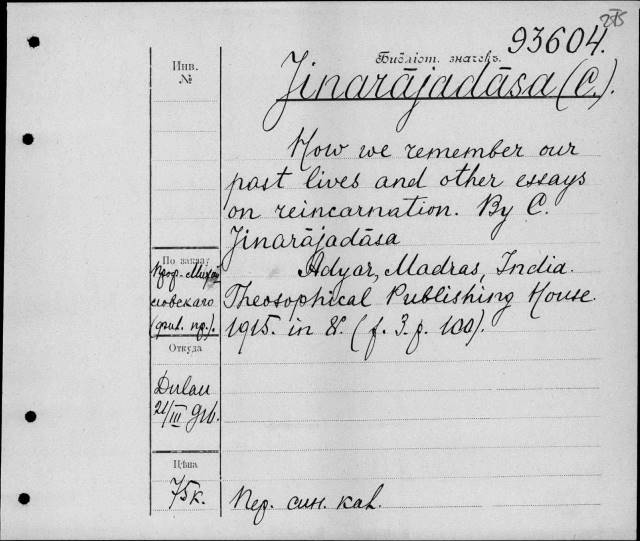 275
93604.
Библіот. значекъ.
Инв.
№
Jinarājadāsa (C.).
How we remember our
past lives and other essays
on reincarnation. By C.
Jinarājadāsa
Adyar, Madras, India.
Theosophical Publishing House.
1915. in 8°. (f. 3. p. 100).
По заказу
Проф.
словскаго
Откуда
Dulau
21/III 916.
Цѣна
75к.
Пер. син. кал.